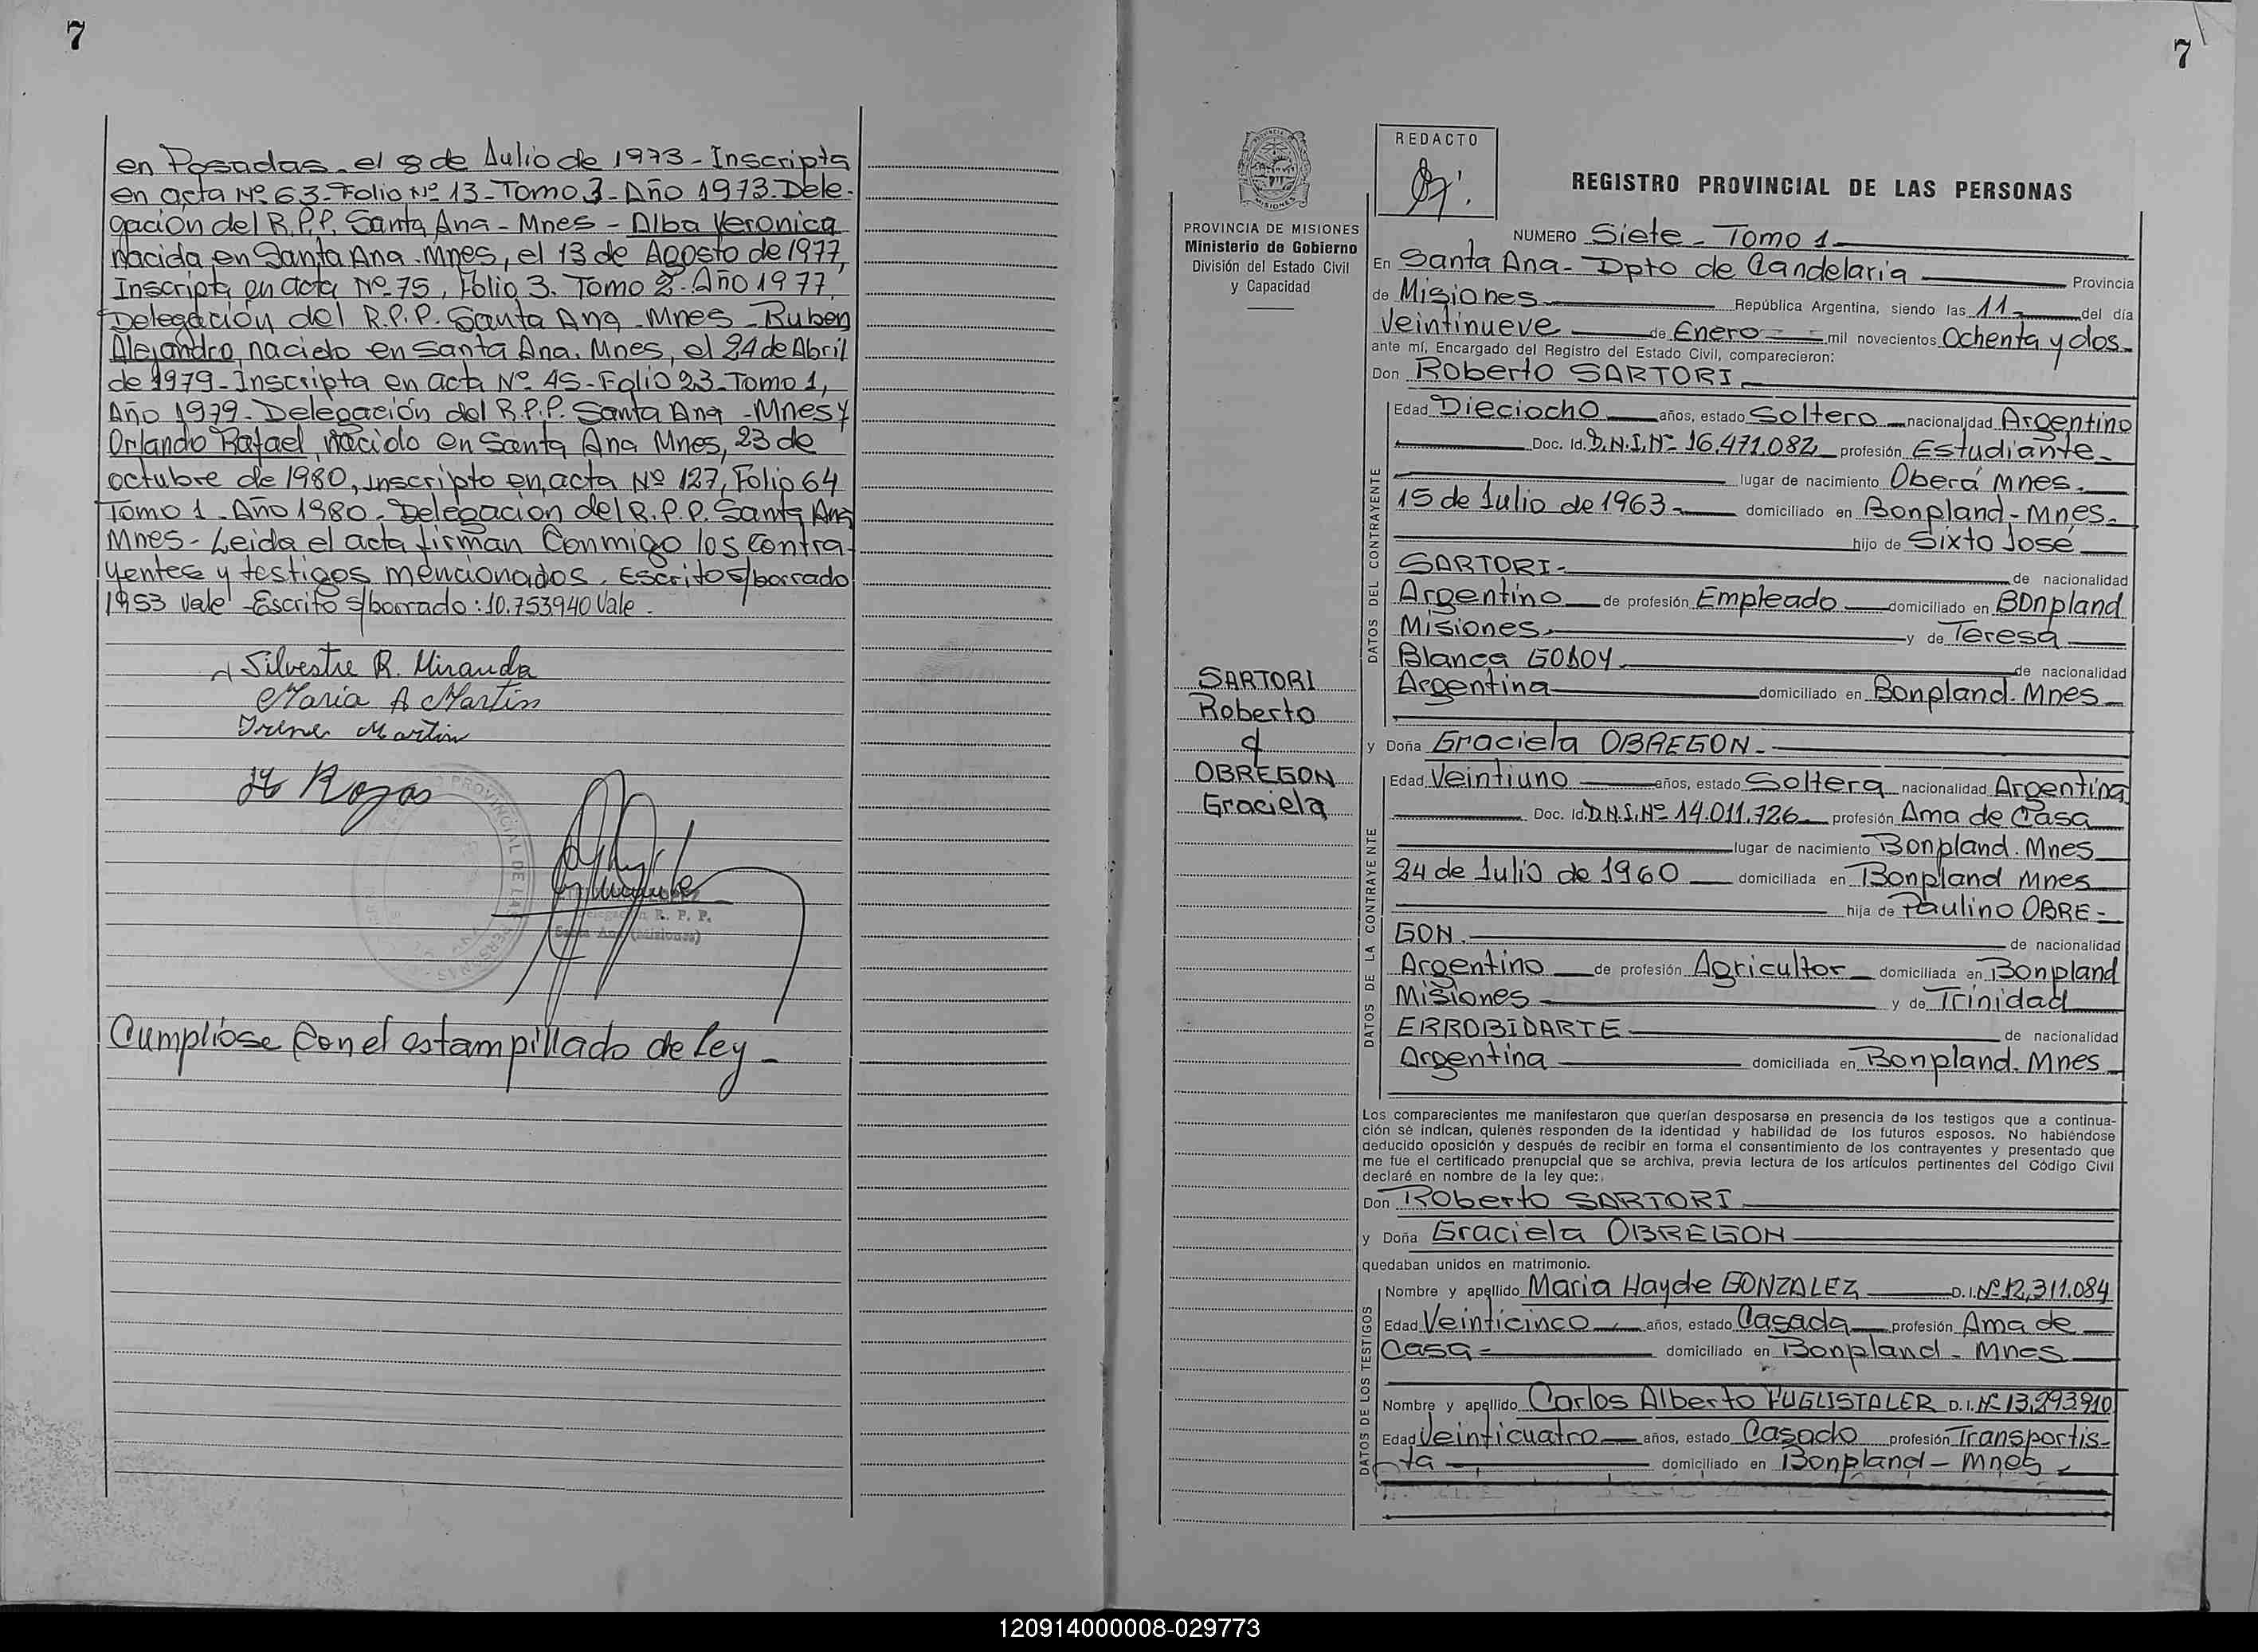 7
en Posadas. el 8 de Julio de 1973 - Inscripta
en acta Nº 63 - Folio Nº 13 - Tomo 3 - Año 1973. Dele-
gación del R.P.P. Santa Ana - Mnes - Alba Veronica
nacida en Santa Ana. Mnes, el 13 de Agosto de 1977,
Inscripta en acta Nº 75, Folio 3. Tomo 2. Año 1977.
Delegación del R.P.P. Santa Ana - Mnes - Ruben
Alejandro, nacido en Santa Ana. Mnes, el 24 de Abril
de 1979 - Inscripta en acta Nº 45 - Folio 23 - Tomo 1,
Año 1979 - Delegación del R.P.P. Santa Ana - Mnes y
Orlando Rafael, nacido en Santa Ana Mnes, 23 de
octubre de 1980, inscripto en acta Nº 127, Folio 64
Tomo 1 - Año 1980 - Delegacion del R.P.P. Santa Ana
Mnes - Leida el acta firman Conmigo los Contra-
yentes y testigos mencionados. Escrito s/borrado
1953 Vale - Escrito s/borrado: 10.753940 Vale.
Silvestre R. Miranda
Maria A Martin
Irene Martin
Rojas
PROVINCIAL DE LAS PERSONAS
Delegación R. P. P.
Santa Ana (Misiones)
Cumplióse con el estampillado de Ley -
7
PROVINCIA DE MISIONES
Ministerio de Gobierno
División del Estado Civil
y Capacidad
SARTORI
Roberto
y
OBREGON
Graciela
REDACTO
REGISTRO PROVINCIAL DE LAS PERSONAS
NUMERO Siete - Tomo 1
En Santa Ana - Dpto de Candelaria Provincia
de Misiones República Argentina, siendo las 11 del día
Veintinueve de Enero mil novecientos Ochenta y dos
ante mí, Encargado del Registro del Estado Civil, comparecieron:
Don Roberto SARTORI
DATOS DEL CONTRAYENTE
Edad Dieciocho años, estado Soltero nacionalidad Argentino
Doc. Id. D.N.I. Nº 16.471.082 profesión Estudiante
lugar de nacimiento Oberá Mnes.
15 de Julio de 1963 domiciliado en Bonpland - Mnes.
hijo de Sixto José
SARTORI - de nacionalidad
Argentino de profesión Empleado domiciliado en Bonpland
Misiones y de Teresa
Blanca GODOY de nacionalidad
Argentina domiciliado en Bonpland. Mnes
y Doña Graciela OBREGON
DATOS DE LA CONTRAYENTE
Edad Veintiuno años, estado Soltera nacionalidad Argentina
Doc. Id. D.N.I. Nº 14.011.726 profesión Ama de Casa
lugar de nacimiento Bonpland. Mnes
24 de Julio de 1960 domiciliada en Bonpland Mnes
hija de Paulino OBRE-
GON. de nacionalidad
Argentino de profesión Agricultor domiciliada en Bonpland
Misiones y de Trinidad
ERROBIDARTE de nacionalidad
Argentina domiciliada en Bonpland. Mnes
Los comparecientes me manifestaron que querían desposarse en presencia de los testigos que a continua-
ción se indican, quienes responden de la identidad y habilidad de los futuros esposos. No habiéndose
deducido oposición y después de recibir en forma el consentimiento de los contrayentes y presentado que
me fue el certificado prenupcial que se archiva, previa lectura de los artículos pertinentes del Código Civil
declaré en nombre de la ley que:
Don Roberto SARTORI
y Doña Graciela OBREGON
quedaban unidos en matrimonio.
DATOS DE LOS TESTIGOS
Nombre y apellido Maria Hayde GONZALEZ D.I. Nº 12,311.084
Edad Veinticinco años, estado Casada profesión Ama de
Casa domiciliado en Bonpland - Mnes
Nombre y apellido Carlos Alberto FUGLISTALER D.I. Nº 13,293.910
Edad Veinticuatro años, estado Casado profesión Transportis-
ta domiciliado en Bonpland - Mnes
120914000008-029773